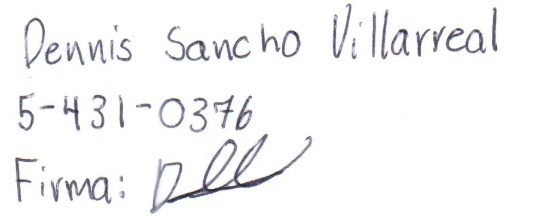 Dennis Sancho Villarreal
5-431-0376
Firma: